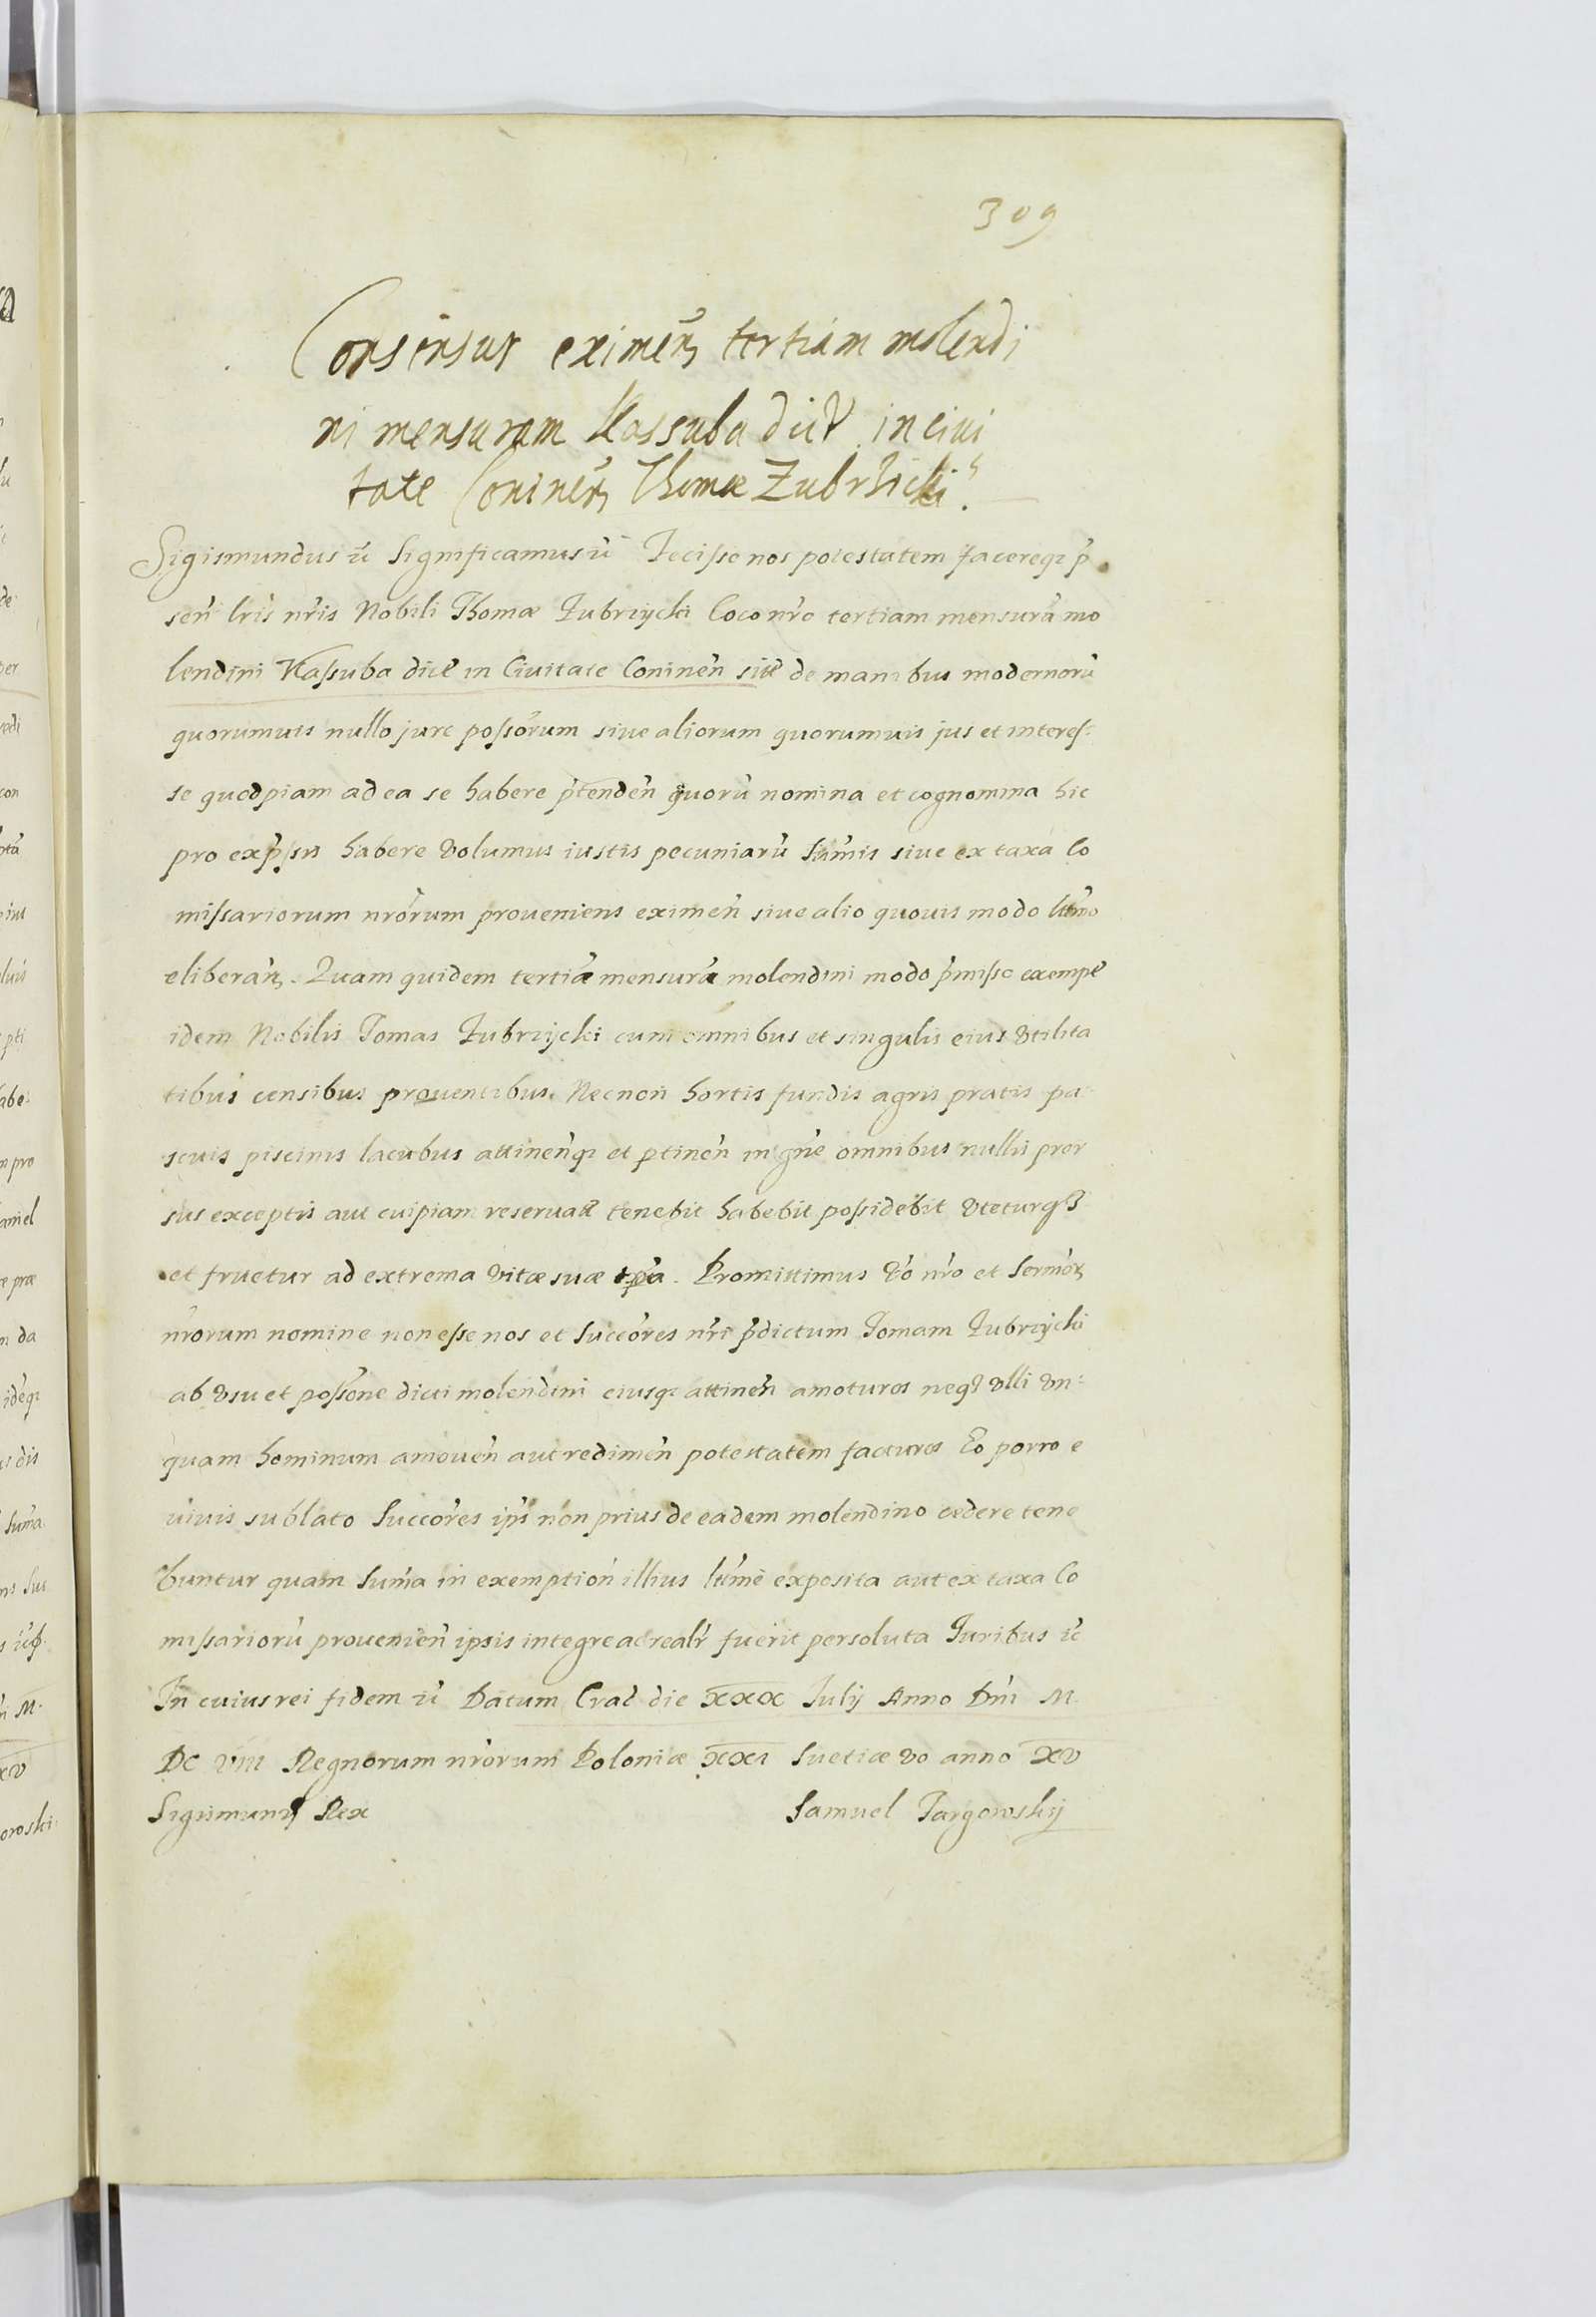 309
Consensus eximen tertiam molendi
ni mensuram Kassuba dict in ciui
tate Coninen Thomæ Zubrzicki.
Sigismundus ec̃ Significamus ec̃ Fecisse nos potestatem facereqз p̃
señ lris nr̃is Nobili Thomæ Zubrzycki Coco nr̃o tertiam mensurã mo
lendini Kassuba dict in Ciuitate Coninen̄ sit̃ de manibus modernorũ
quorumuis nullo jure possorum siue aliorum quorumuis jus et interes=
se quodpiam ad ea se habere p̃tenden̄ quorũ nomina et cognomina hic
pro exp̃ssis habere volumus iustis pecuniarũ Sum̃is siue ex taxa Co
missariorum nrõrum proueniens eximen̄ siue alio quouis modo ltm̃o
eliberan̄. Quam quidem tertiã mensurã molendini modo p̃misso exempt
idem Nobilis Tomas Zubrzycki cum omnibus et singulis eius vtilita
tibus censibus prouentibus. Necnon hortis fundis agris pratis pa
scuis piscinis lacubus attinen̄qз et ptinen̄ in gñe omnibus nullis pror
sus exceptis aut cuipiam reseruatt tenebit habebit possidebit vteturqз
et fruetur ad extrema vitæ suæ tpa. Promittimus vo nr̃o et Sermor
nr̃orum nomine non esse nos et Succõres nr̃i p̃dictum Tomam Zubrzycki
ab vsu et possõne dicti molendini eiusqз attinen̄ amoturos neqз vlli vn=
quam hominum amouen̄ aut redimen̄ potestatem facturos Eo porro e
viuis sublato Succõres ip̃i non prius de eadem molendino cedere tene
buntur quam Sum̃a in exemption̄ illius ltm̃e exposita aut ex taxa Co
missariorũ prouenien̄ ipsis integre ac realr̃ fuerit persoluta Iuribus ec̃
In cuius rei fidem ec̃ Datum Crac̃ die XXX Iulij Anno Dn̄i M
DC VIII Regnorum nr̃orum Poloniæ XXI Suetiæ vo anno XV
Sigismundꝰ Rex Samuel Targowskij